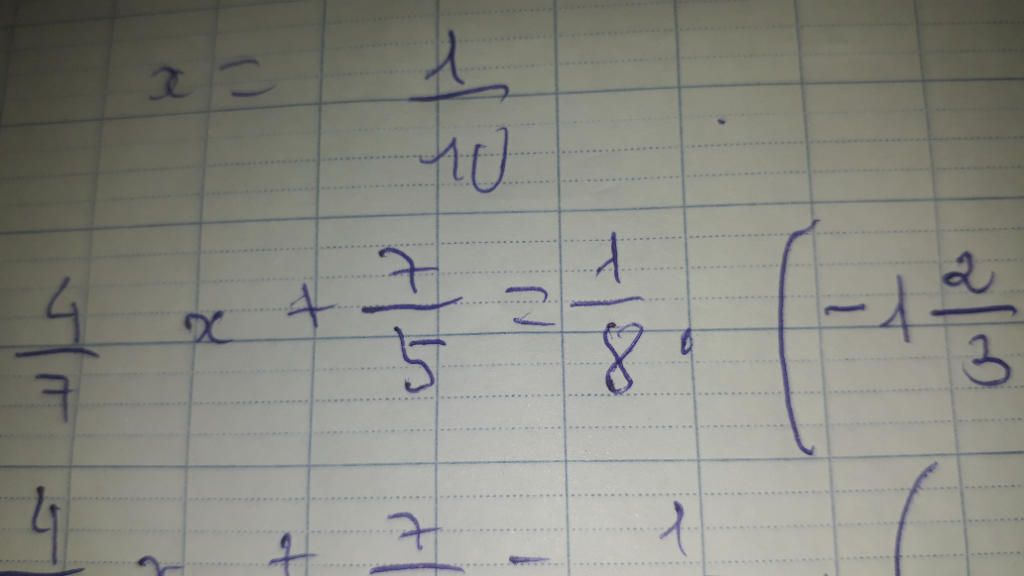 x = 1/10
4/7 x + 7/5 = 1/8 . ( -1 2/3
4 x + 7 - 1 (